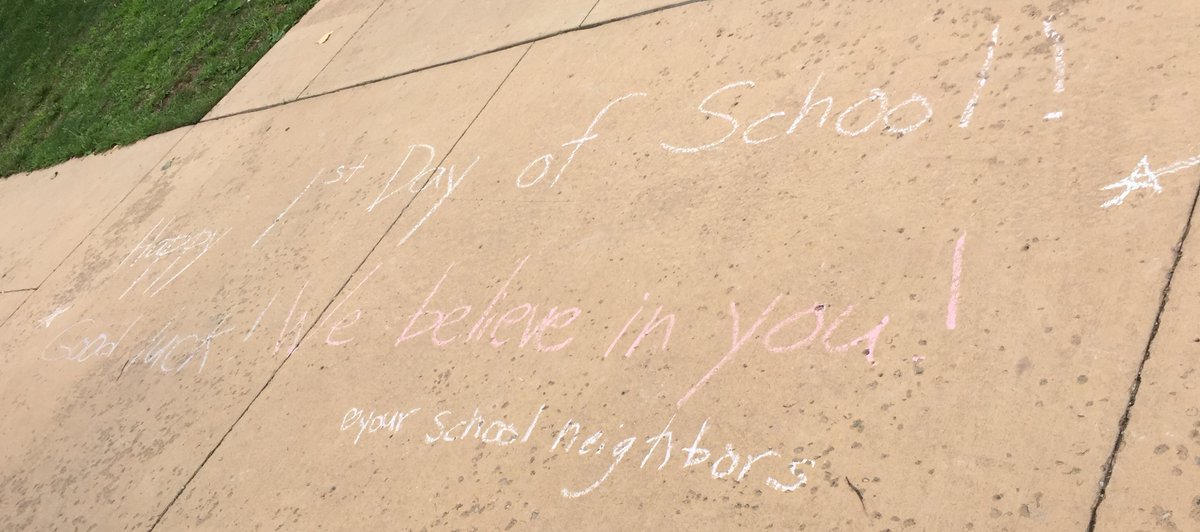 Happy 1st Day of School!!
Good luck! We believe in you!
@your school neighbors